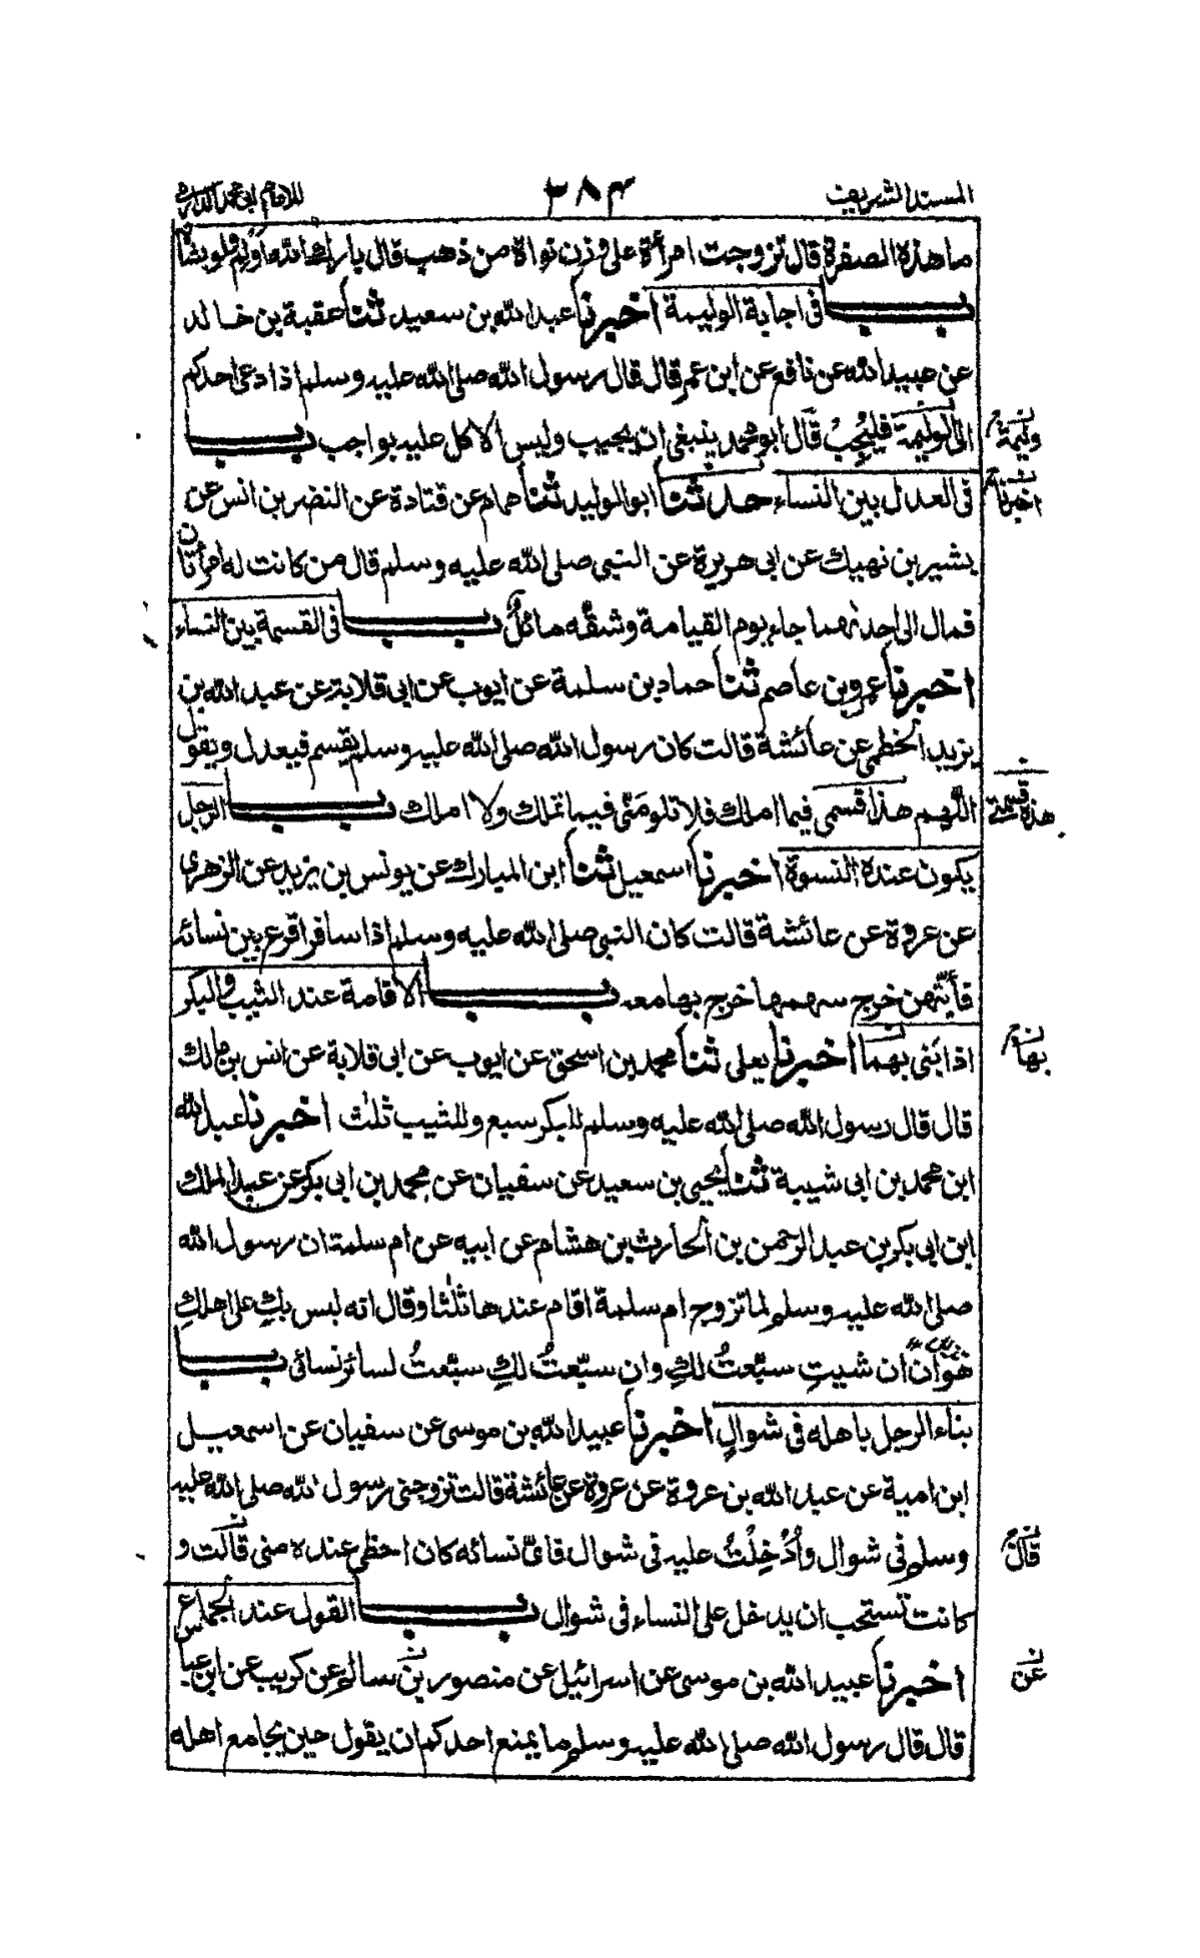 المسند الشريف
٣٨٤
للامام ابى محمد الدارمى
ما هذه الصفرة قال تزوجت امرأة على وزن نواة من ذهب قال بارك الله اَوْلِمْ ولو بشاة
بــاب فى اجابة الوليمة اخبرنا عبد الله بن سعيد ثنا عقبة بن خالد
عن عبيد الله عن نافع عن ابن عمر قال قال رسول الله صلى الله عليه وسلم اذا دعى احدكم
الى الوليمة فليُجِبْ قال ابو محمد ينبغى ان يجيب وليس الاكل عليه بواجب بــاب
وليمة
فى العدل بين النساء حدثنا ابو الوليد ثنا همام عن قتادة عن النضر بن انس عن
اخبرنا
بشير بن نهيك عن ابى هريرة عن النبى صلى الله عليه وسلم قال من كانت له امرأتان
فمال الى احدٰىهما جاء يوم القيامة وشقُّه مائلٌ بــاب فى القسمة بين النساء
اخبرنا عمرو بن عاصم ثنا حماد بن سلمة عن ايوب عن ابى قلابة عن عبد الله بن
يزيد الخطمى عن عائشة قالت كان رسول الله صلى الله عليه وسلم يقسم فيعدل ويقول
اللّٰهم هذا قسمى فيما املك فلا تلومَنّى فيما تملك ولا املك بــاب الرجل
هذه قسمتى
يكون عنده النسوة اخبرنا اسمعيل ثنا ابن المبارك عن يونس بن يزيد عن الزهرى
عن عروة عن عائشة قالت كان النبى صلى الله عليه وسلم اذا سافر اقرع بين نسائه
فأيّتهن خرج سهمها خرج بها معه بــاب الاقامة عند الثيب والبكر
اذا بَنى بهما اخبرنا يعلى ثنا محمد بن اسحق عن ايوب عن ابى قلابة عن انس بن مالك
بها
قال قال رسول الله صلى الله عليه وسلم للبكر سبع وللثيب ثلٰث اخبرنا عبد الله
ابن محمد بن ابى شيبة ثنا يحيى بن سعيد عن سفيان عن محمد بن ابى بكر عن عبد الملك
ابن ابى بكر بن عبد الرحمن بن الحارث بن هشام عن ابيه عن ام سلمة ان رسول الله
صلى الله عليه وسلم لما تزوج ام سلمة اقام عندها ثلٰثا وقال انه ليس بكِ على اهلكِ
هَوَانٌ ان شيتِ سبّعتُ لكِ وان سبّعتُ لكِ سبّعتُ لسائر نسائى بــاب
بناء الرجل باهله فى شوالٍ اخبرنا عبيد الله بن موسى عن سفيان عن اسمعيل
ابن امية عن عبد الله بن عروة عن عروة عن عائشة قالت تزوجنى رسول الله صلى الله عليه
وسلم فى شوال واُدْخِلْتُ عليه فى شوال فاىّ نسائه كان احظى عنده منى قالت و
قال
كانت تستحب ان يدخل على النساء فى شوال بــاب القول عند الجماع
اخبرنا عبيد الله بن موسى عن اسرائيل عن منصور بن سالم عن كريب عن ابن عباس
عن
قال قال رسول الله صلى الله عليه وسلم ما يمنع احدكم ان يقول حين يجامع اهله